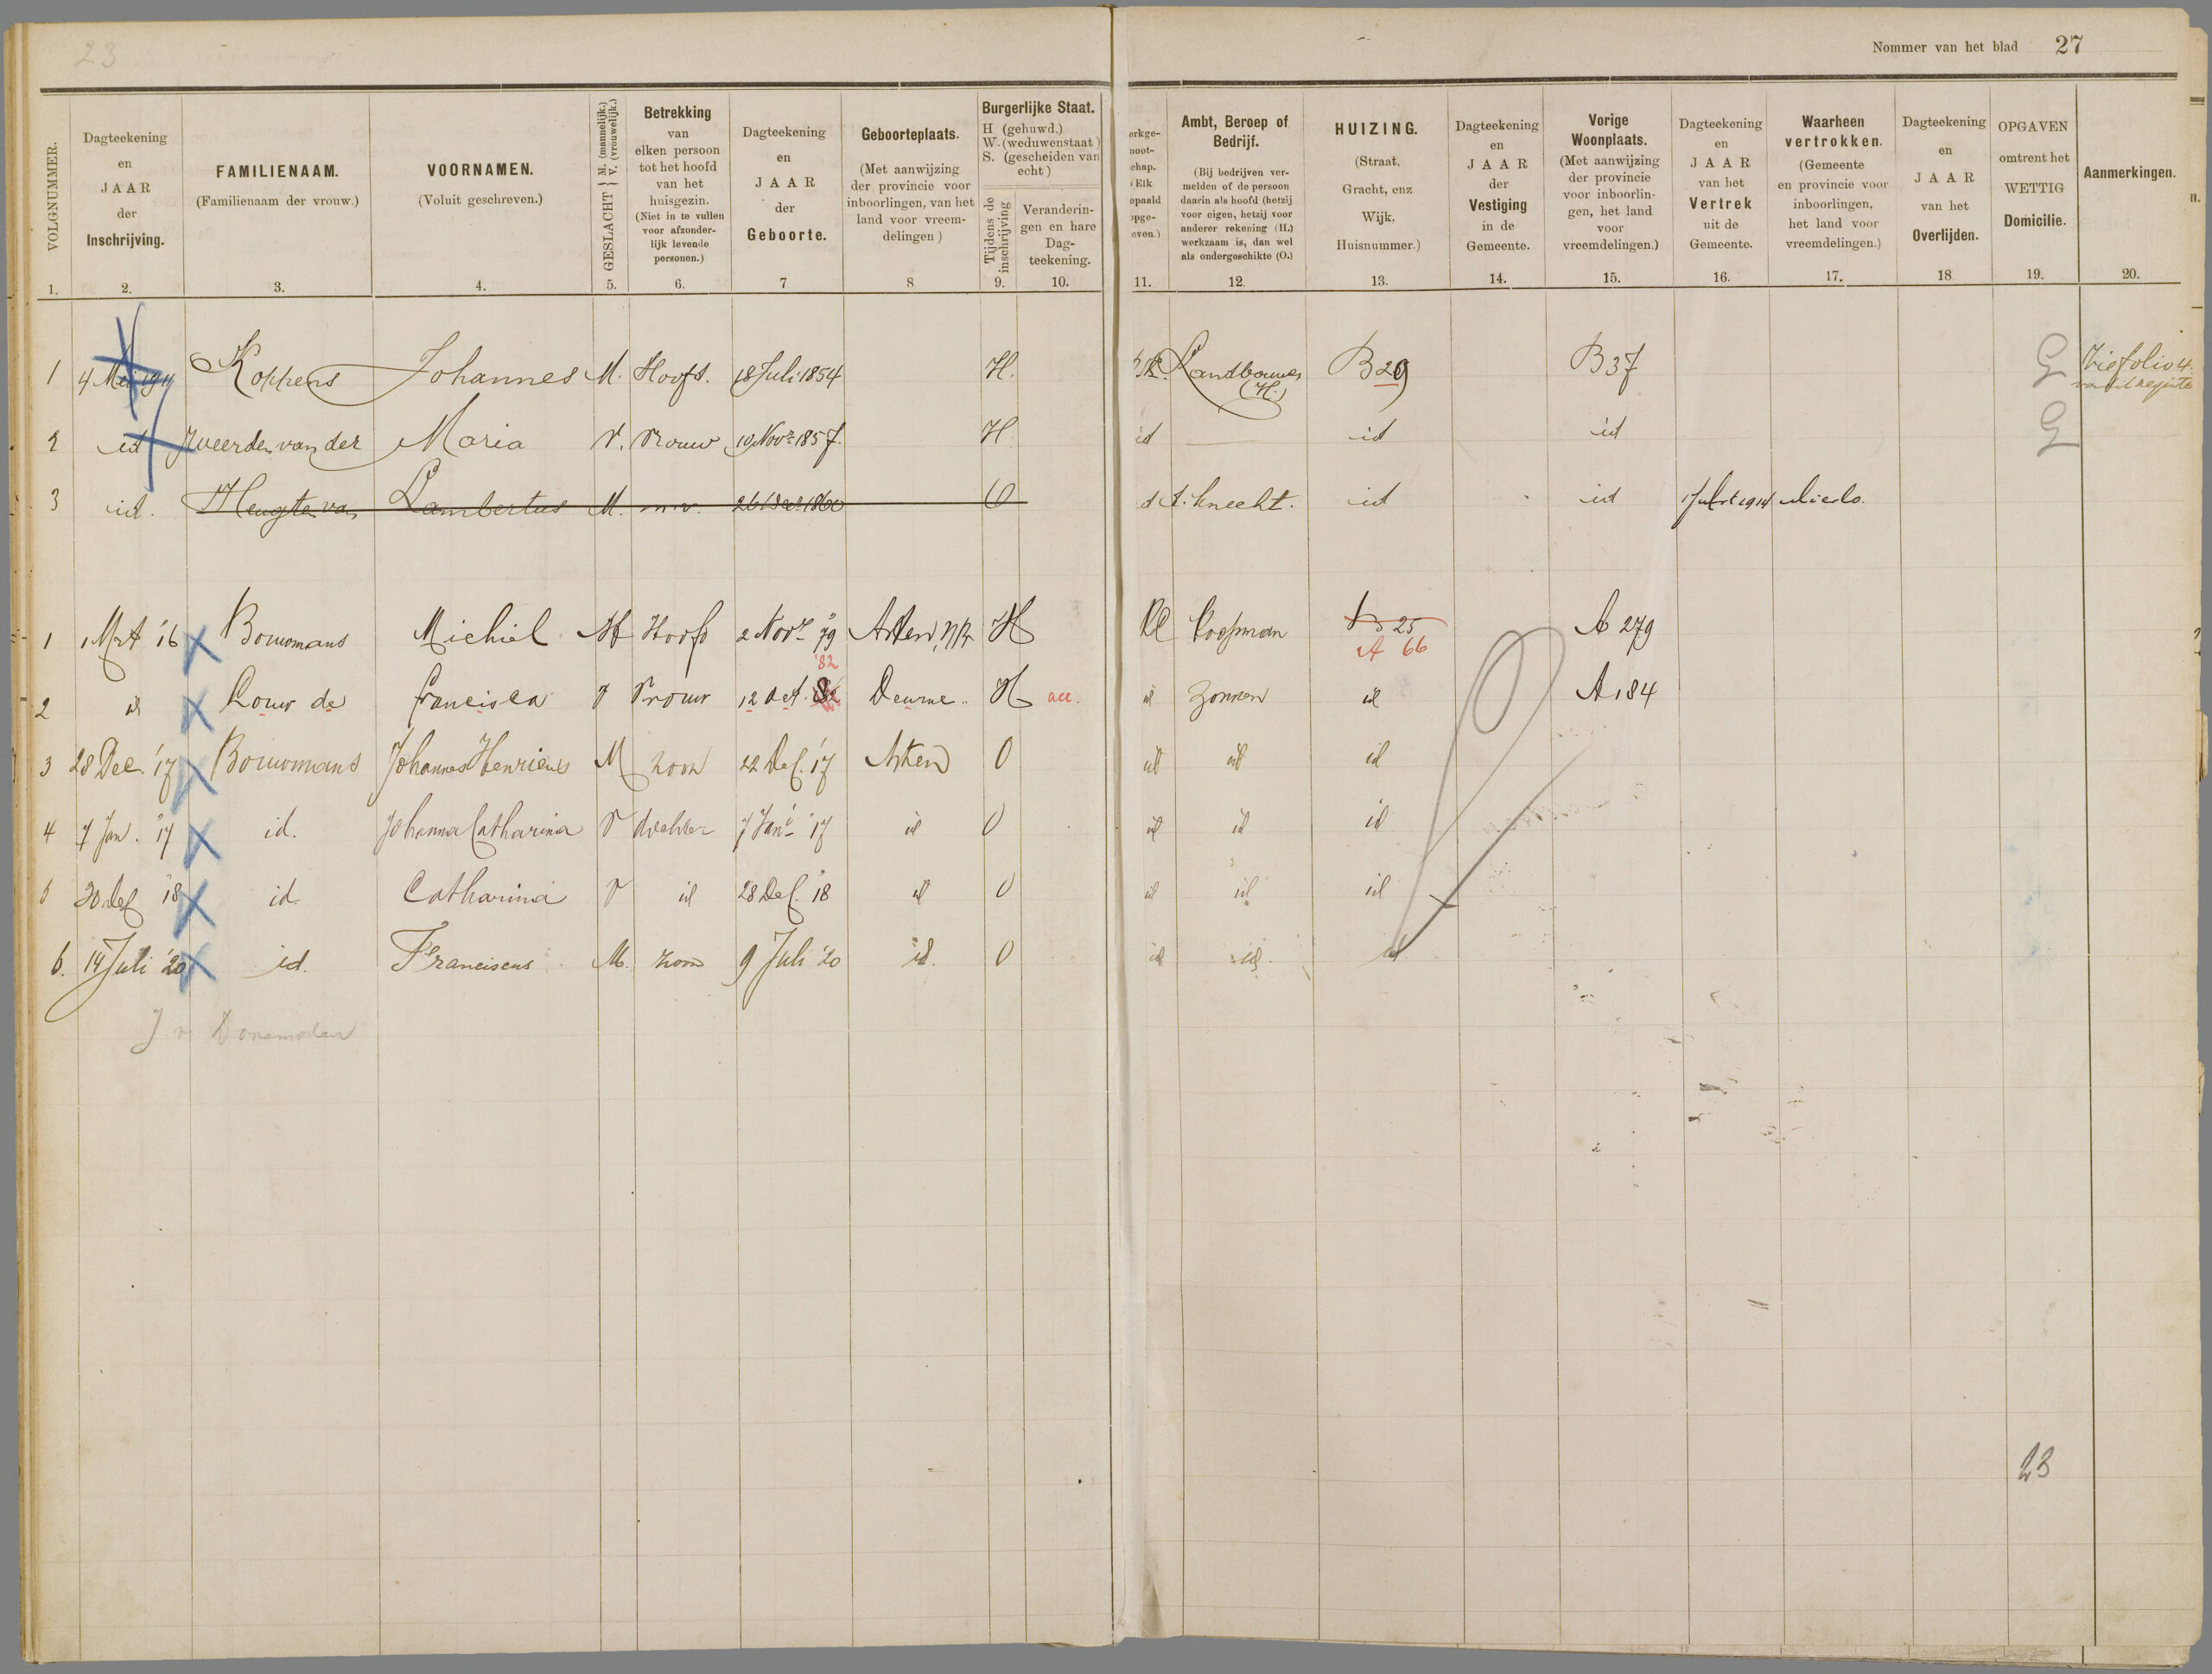 23
Nommer van het blad 27
VOLGNUMMER.
1.
Dagteekening
en
JAAR
der
Inschrijving.
2.
FAMILIENAAM.
(Familienaam der vrouw.)
3.
VOORNAMEN.
(Voluit geschreven.)
4.
GESLACHT { M. (mannelijk.) V. (vrouwelijk.)
5.
Betrekking
van
elken persoon
tot het hoofd
van het
huisgezin.
(Niet in te vullen
voor afzonder-
lijk levende
personen.)
6.
Dagteekening
en
JAAR
der
Geboorte.
7
Geboorteplaats.
(Met aanwijzing
der provincie voor
inboorlingen, van het
land voor vreem-
delingen)
8
Burgerlijke Staat.
H (gehuwd.)
W. (weduwenstaat)
S. (gescheiden van
echt)
Tijdens de
inschrijving
9.
Veranderin-
gen en hare
Dag-
teekening.
10.
erkge-
noot-
chap.
(Elk
epaald
opge-
even.)
11.
Ambt, Beroep of
Bedrijf.
(Bij bedrijven ver-
melden of de persoon
daarin als hoofd (hetzij
voor eigen, hetzij voor
anderer rekening (H.)
werkzaam is, dan wel
als ondergeschikte (O.)
12.
HUIZING.
(Straat,
Gracht, enz
Wijk,
Huisnummer.)
13.
Dagteekening
en
JAAR
der
Vestiging
in de
Gemeente.
14.
Vorige
Woonplaats.
(Met aanwijzing
der provincie
voor inboorlin-
gen, het land
voor
vreemdelingen.)
15.
Dagteekening
en
JAAR
van het
Vertrek
uit de
Gemeente.
16.
Waarheen
vertrokken.
(Gemeente
en provincie voor
inboorlingen,
het land voor
vreemdelingen.)
17.
Dagteekening
en
JAAR
van het
Overlijden.
18
OPGAVEN
omtrent het
WETTIG
Domicilie.
19.
Aanmerkingen.
20.
1 4 Mei 1914 Koppens Johannes M. Hoofd. 18 Juli 1854 H. R. Landbouwer (H.) B 29 B 37 G Zie folio 4.
2 id Zweerde van der Maria V. Vrouw 10 Novr 1857. H id id id G
3 id. Heugten van Lambertus M. 26 1860 O d. knecht. id id 1914 Mierlo.
1 1 Mrt '16 Bouwmans Michiel M Hoofd 2 Novr '79 Asten, N/B H RC Koopman 25 A 66 A 279
2 id Louw de Francisca V Vrouw 12 Oct. '82 Deurne. H acc. id Zonder id A 184
3 28 Dec. '17 Bouwmans Johannes Henricus M zoon 22 Dec. '17 Asten O id id id
4 7 Jan. '17 id. Johanna Catharina V dochter 7 Jan. '17 id O id id id
5 30 Dec '18 id. Catharina V id 28 Dec. '18 id O id id id
6. 14 Juli '20 id. Franciscus M. zoon 9 Juli '20 id. O id id. id
23